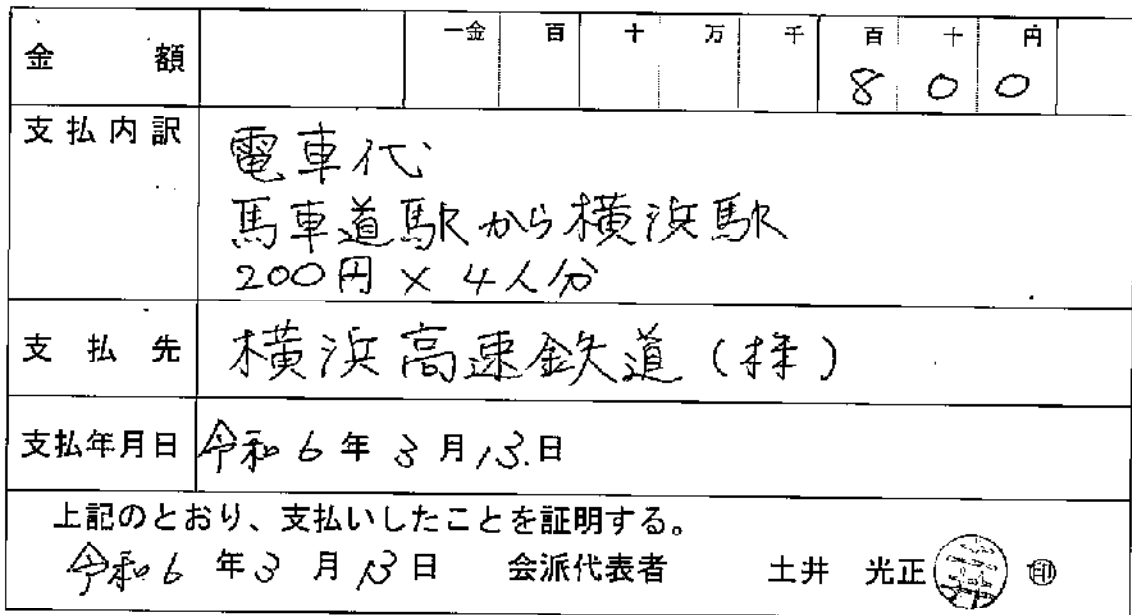 金額 一金 百 十 万 千 百 十 円
8 0 0
支払内訳 電車代
馬車道駅から横浜駅
200円 × 4人分
支払先 横浜高速鉄道(株)
支払年月日 令和6年3月13日
上記のとおり、支払いしたことを証明する。
令和6年3月13日 会派代表者 土井 光正 ㊞